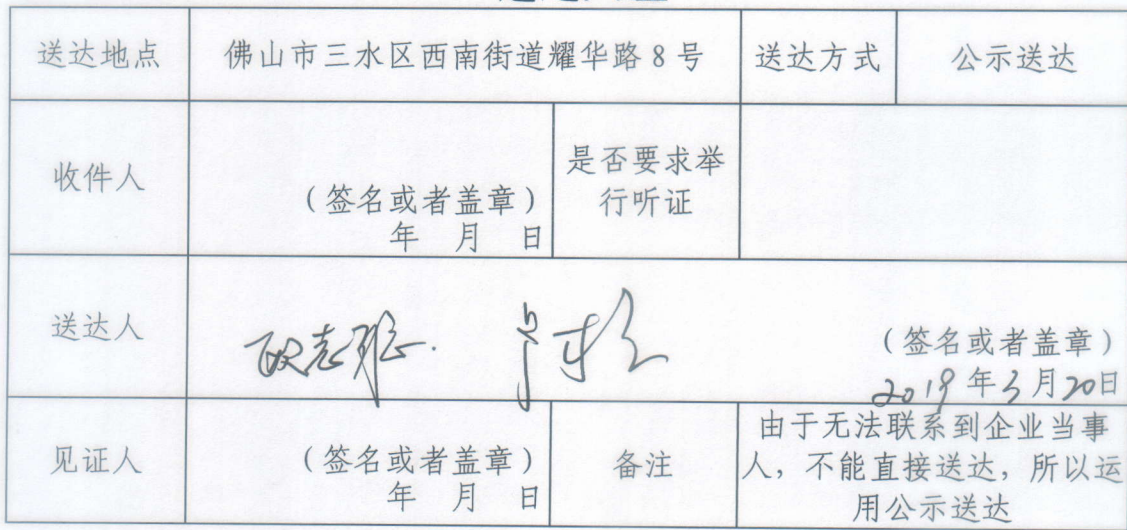 送达地点 佛山市三水区西南街道耀华路8号 送达方式 公示送达
收件人
(签名或者盖章)
年 月 日
是否要求举
行听证
送达人
(签名或者盖章)
2019年3月20日
见证人
(签名或者盖章)
年 月 日
备注
由于无法联系到企业当事
人，不能直接送达，所以运
用公示送达